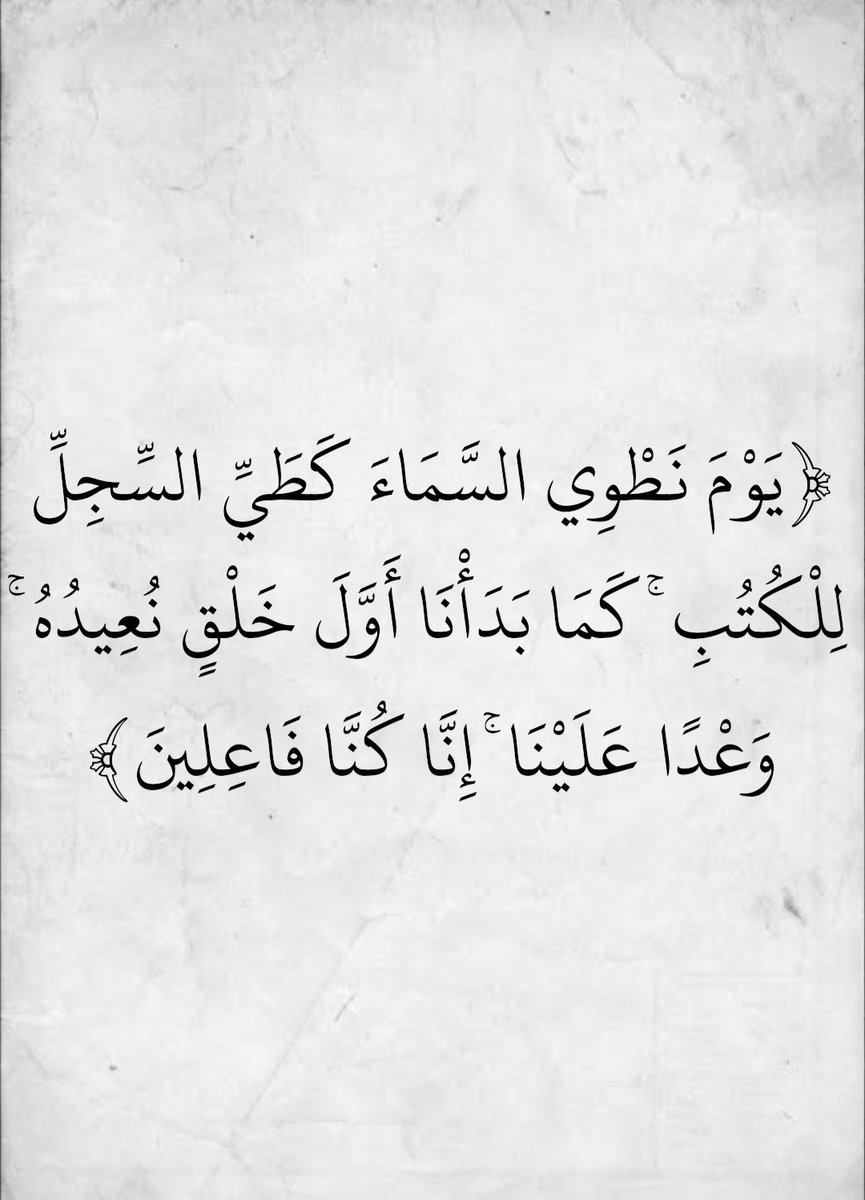 ﴿يَوْمَ نَطْوِي السَّمَاءَ كَطَيِّ السِّجِلِّ
لِلْكُتُبِ ۚ كَمَا بَدَأْنَا أَوَّلَ خَلْقٍ نُعِيدُهُ ۚ
وَعْدًا عَلَيْنَا ۚ إِنَّا كُنَّا فَاعِلِينَ﴾